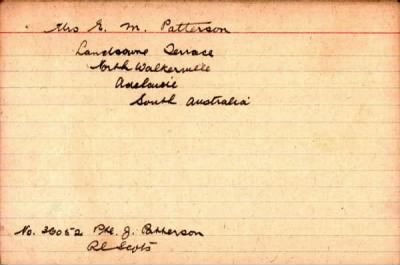 Mrs E. M. Patterson
Landsowne Terrace
North Walkerville
Adelaide
South Australia
No. 36052 Pte. J. Patterson
Rl Scots